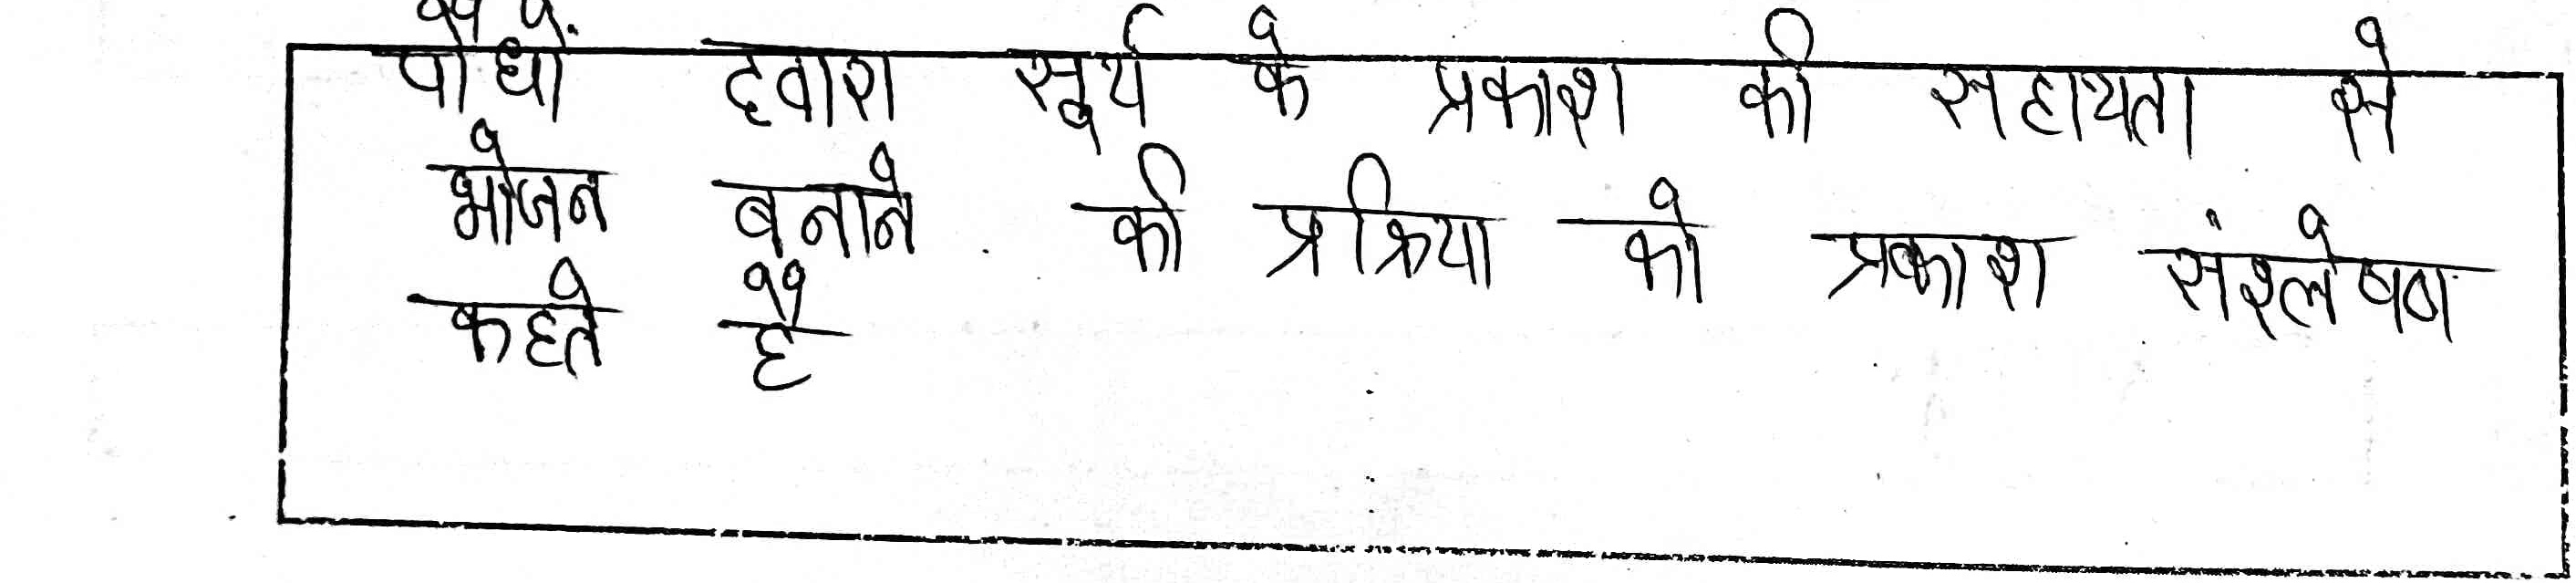 पौधों द्वारा सूर्य के प्रकाश की सहायता से
भोजन बनाने की प्रक्रिया को प्रकाश संश्लेषण
कहते है